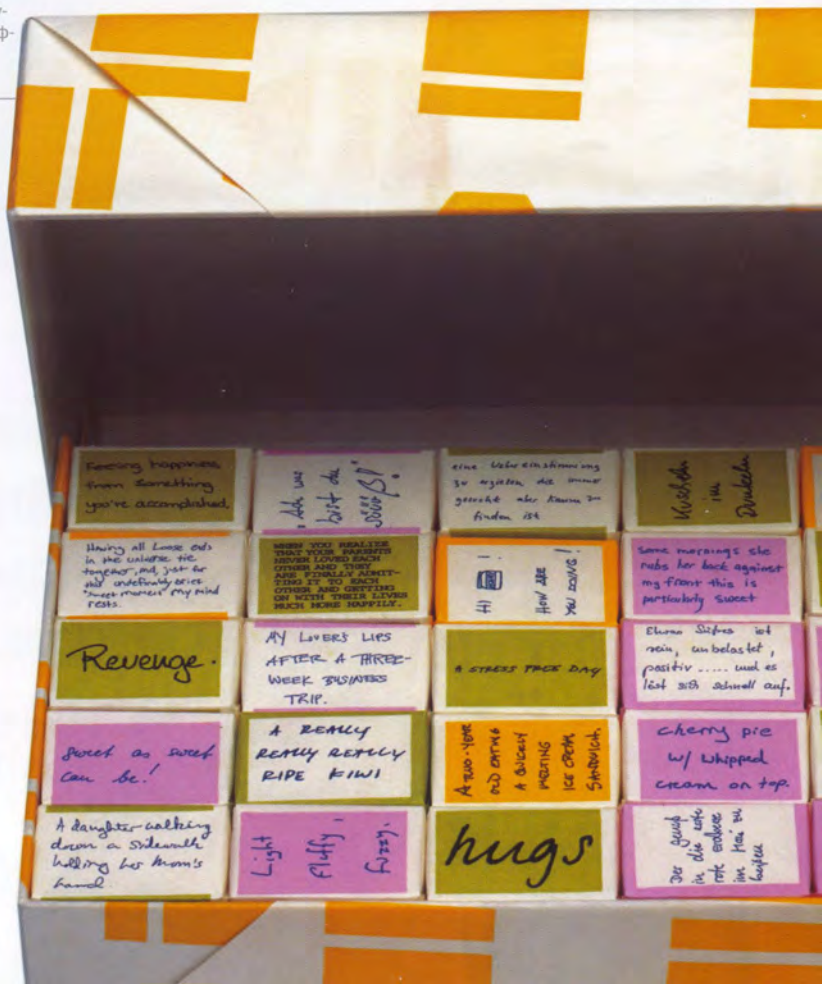 Feeling happiness
from something
you're accomplished.
"Ach wie
bist du
süüüß!"
eine Übereinstimmung
zu erzielen die immer
gesucht aber kaum zu
finden ist
Kuscheln
im
Dunkeln
Having all loose ends
in the universe tie
together, and, just for
this undefinably brief
"sweet moment" my mind
rests.
WHEN YOU REALIZE
THAT YOUR PARENTS
NEVER LOVED EACH
OTHER AND THEY
ARE FINALLY ADMIT-
TING IT TO EACH
OTHER AND GETTING
ON WITH THEIR LIVES
MUCH MORE HAPPILY.
HI !
HOW ARE
YOU DOING!
some mornings she
rubs her back against
my front this is
particularly sweet
Revenge.
MY LOVER'S LIPS
AFTER A THREE-
WEEK BUSINESS
TRIP.
A STRESS FREE DAY
Etwas Süßes ist
rein, unbelastet,
positiv ..... und es
löst sich schnell auf.
sweet as sweet
can be!
A REALLY
REALLY REALLY
RIPE KIWI
A TWO-YEAR
OLD EATING
A QUICKLY
MELTING
ICE CREAM
SANDWICH.
cherry pie
w/ whipped
cream on top.
A daughter walking
down a sidewalk
holding her mom's
hand.
Light
Fluffy,
fuzzy.
hugs
Der Genuß
in die erste
rote erdbeere
im Mai zu
beißen